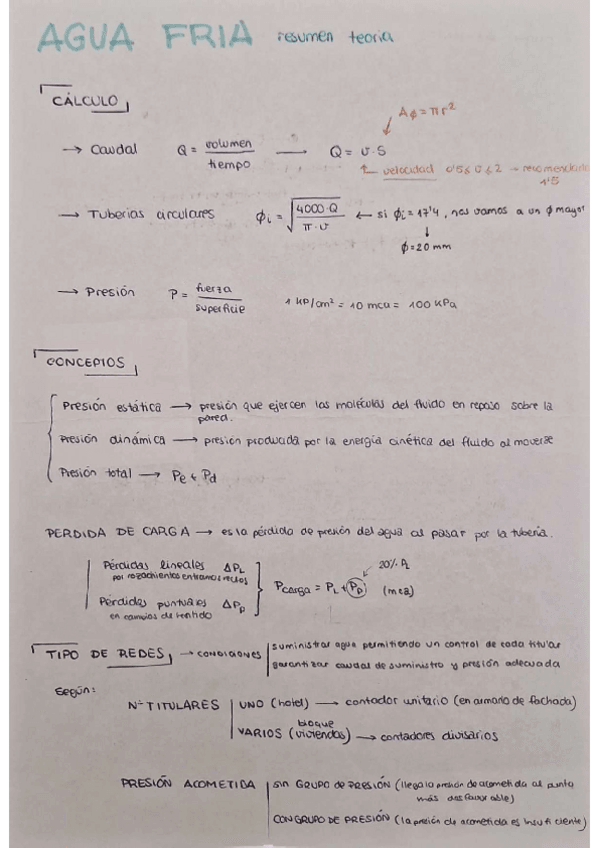 AGUA FRIA resumen teoria
CÁLCULO
Aϕ = πr²
→ Caudal Q = volumen / tiempo — Q = v·S
velocidad 0'5 ≤ v ≤ 2 → recomendable
1'5
→ Tuberias circulares ϕi = √(4000·Q / π·v) ← si ϕi = 17'4, nos vamos a un ϕ mayor
↓
ϕ = 20 mm
→ Presión P = fuerza / superficie 1 KP/cm² = 10 mca = 100 KPa
CONCEPTOS
Presión estática → presión que ejercen las moléculas del fluido en reposo sobre la
pared.
Presión dinámica → presión producida por la energía cinética del fluido al moverse
Presión total → Pe + Pd
PERDIDA DE CARGA → es la pérdida de presión del agua al pasar por la tuberia.
20% PL
Pérdidas lineales ΔPL
por rozamientos en tramos rectos
Pcarga = PL + Pp (mca)
Pérdidas puntuales ΔPp
en cambios de sentido
TIPO DE REDES → CONDICIONES suministrar agua permitiendo un control de cada titular
garantizar caudal de suministro y presión adecuada
Según:
Nº TITULARES UNO (hotel) → contador unitario (en armario de fachada)
bloque
VARIOS (viviendas) → contadores divisarios
PRESIÓN ACOMETIDA SIN GRUPO DE PRESIÓN (llega la presión de acometida al punto
más desfavorable)
CON GRUPO DE PRESIÓN (la presión de acometida es insuficiente)